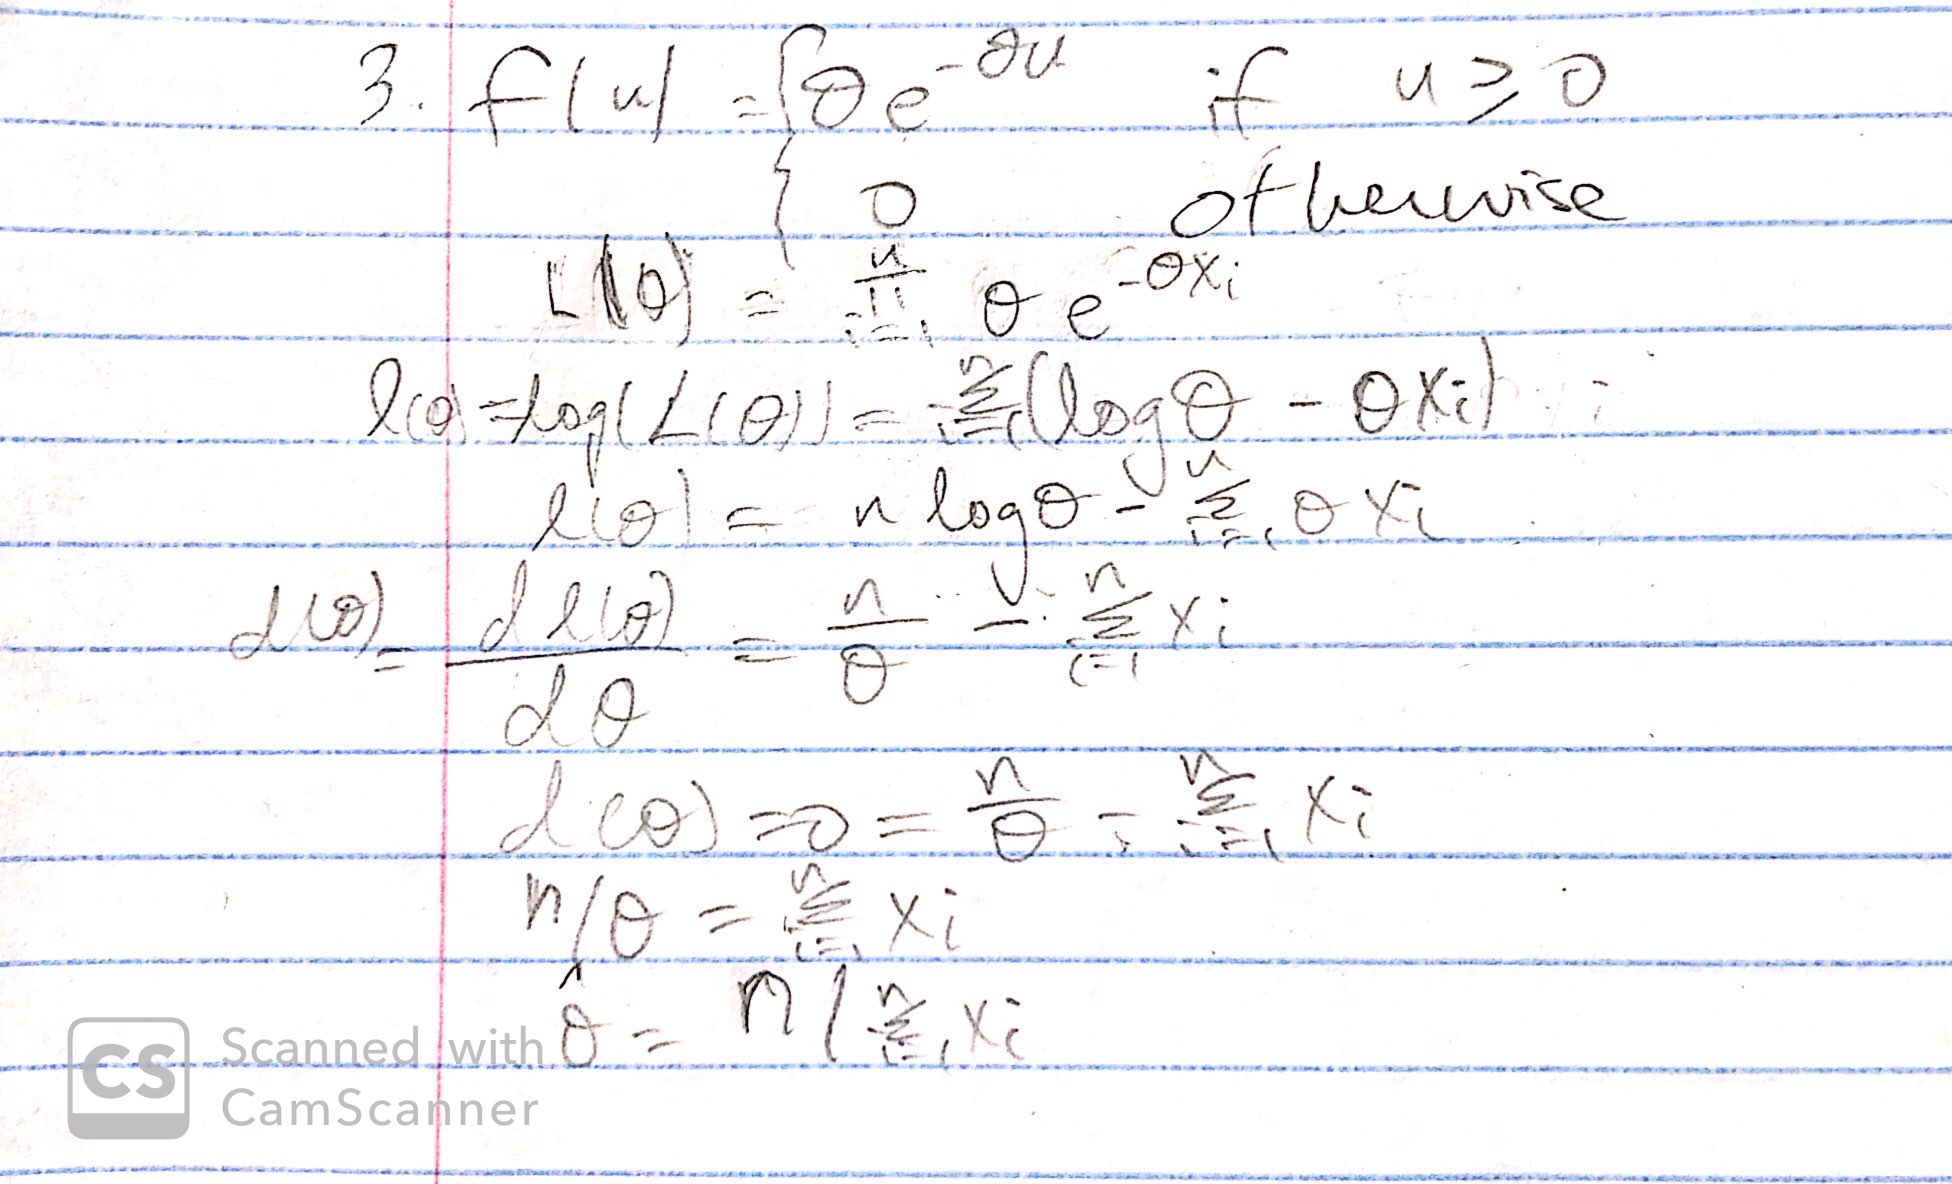 3. f(u) = { θe^{-θu} if u ≥ 0
0 otherwise
L(θ) = ∏_{i=1}^{n} θ e^{-θx_i}
l(θ) = log(L(θ)) = Σ_{i=1}^{n} (log θ - θx_i)
l(θ) = n log θ - Σ_{i=1}^{n} θx_i
d(θ) = dl(θ)/dθ = n/θ - Σ_{i=1}^{n} x_i
d(θ) = 0 = n/θ - Σ_{i=1}^{n} x_i
n/θ = Σ_{i=1}^{n} x_i
θ̂ = n / Σ_{i=1}^{n} x_i
CS Scanned with
CamScanner